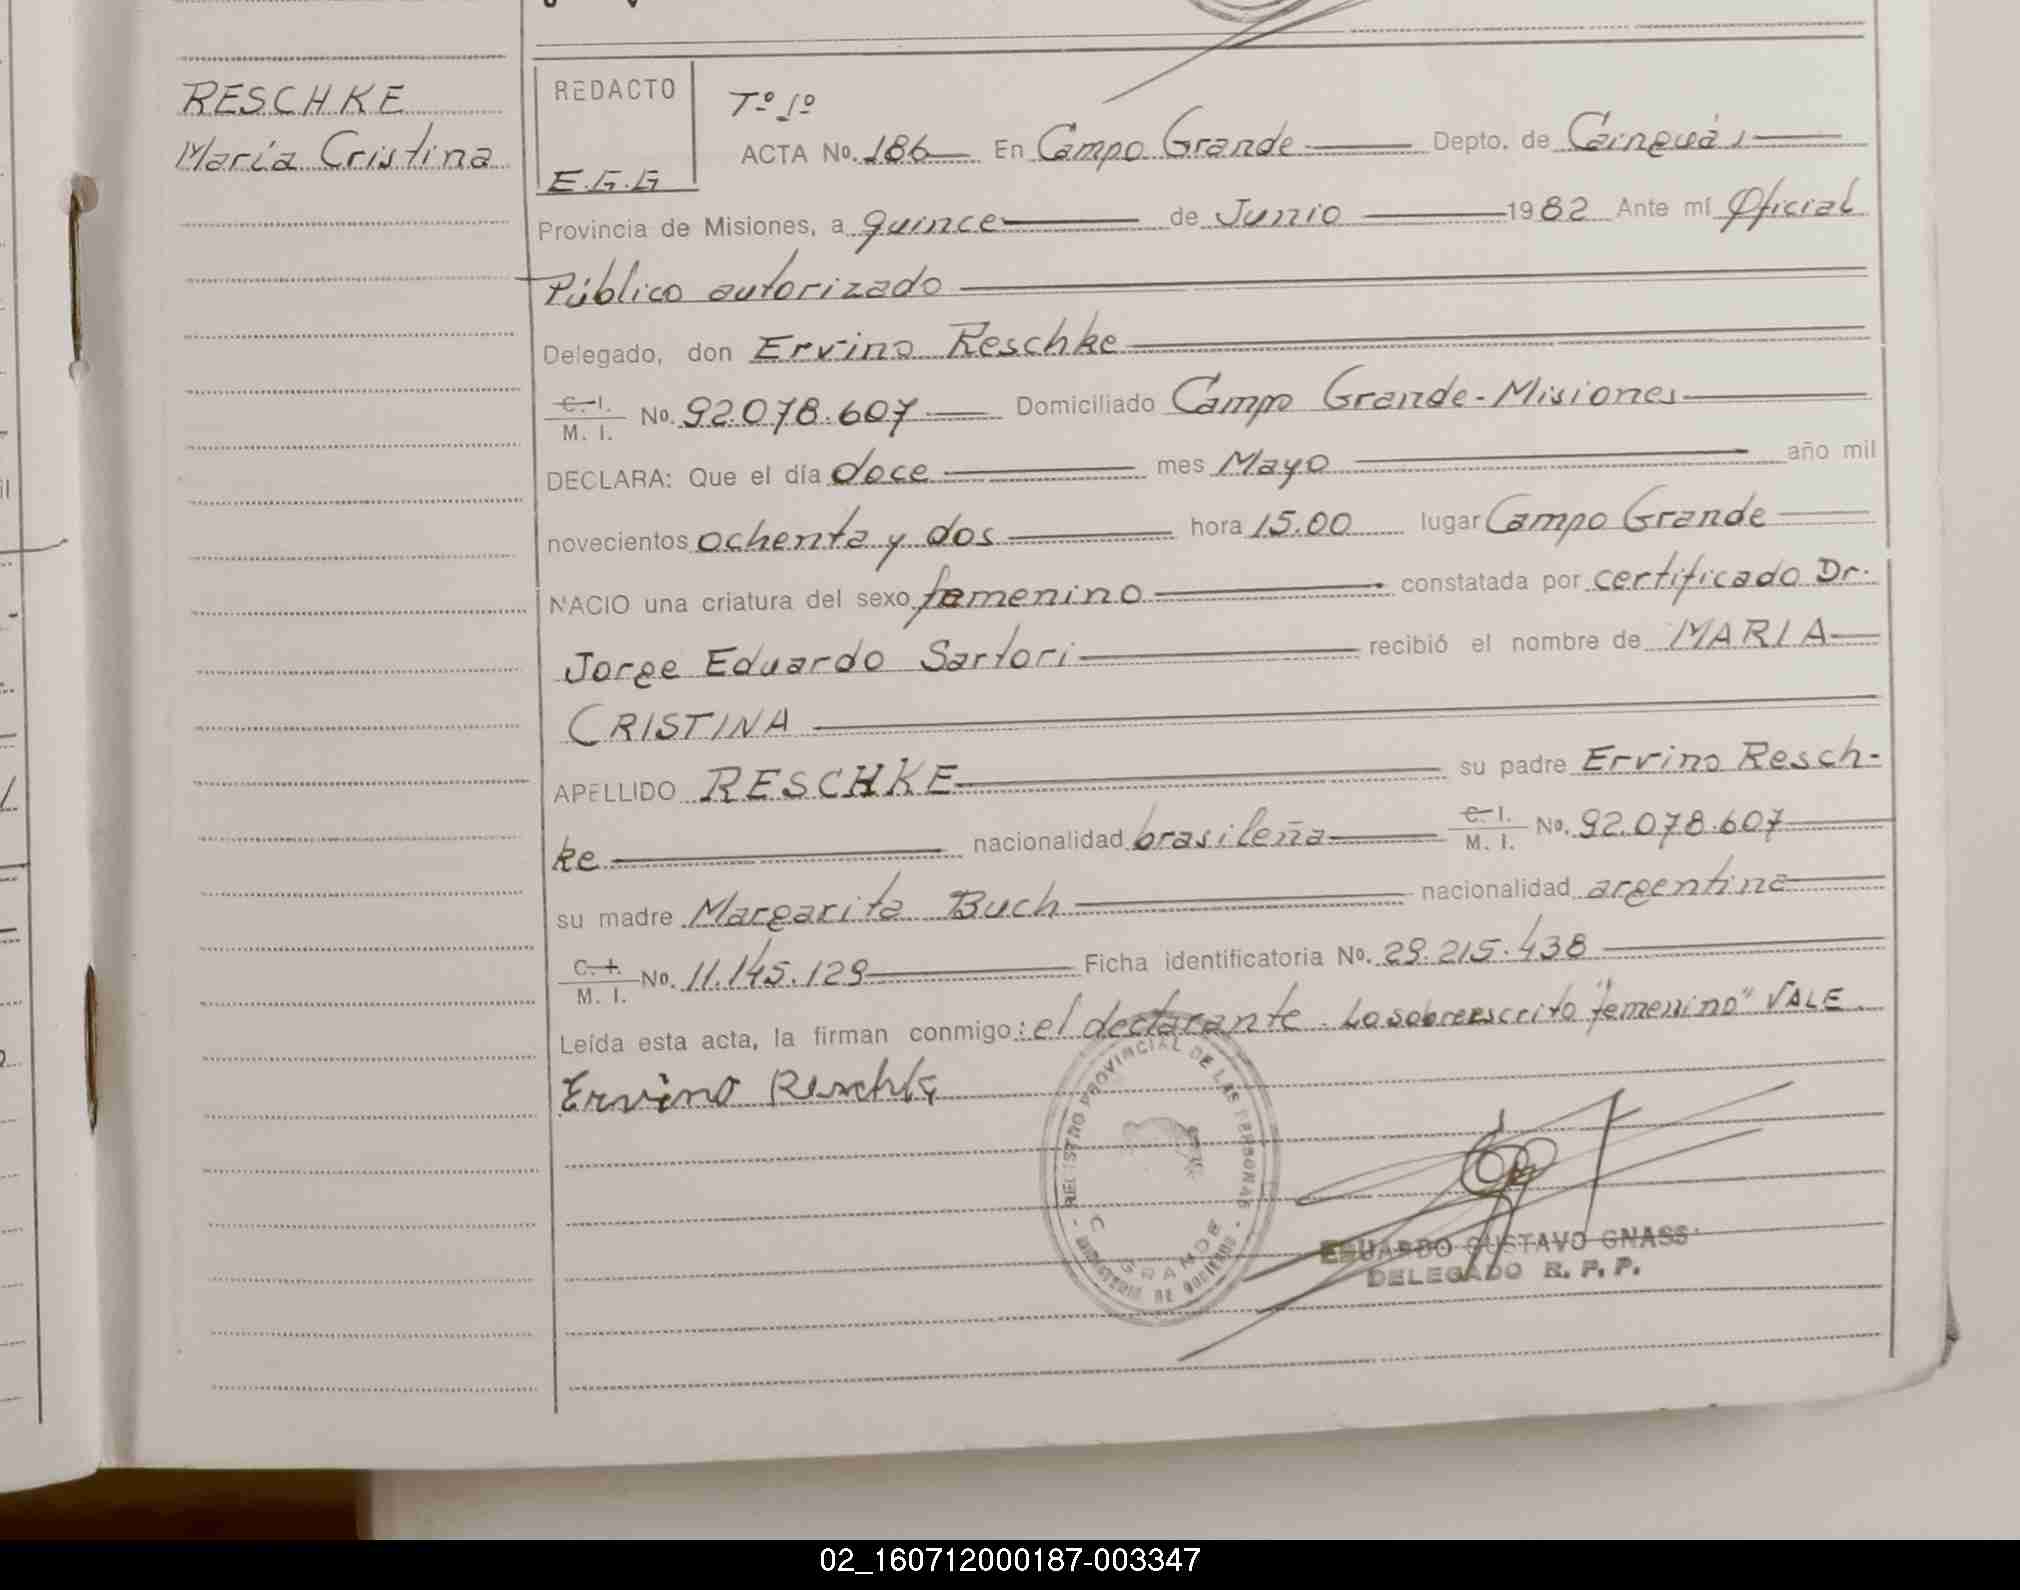 RESCHKE
María Cristina
REDACTO
E.G.G
Tº 1º
ACTA No. 186 En Campo Grande Depto. de Cainguás
Provincia de Misiones, a quince de Junio 1982 Ante mí Oficial
Público autorizado
Delegado, don Ervino Reschke
C. I.
M. I. No. 92.078.607 Domiciliado Campo Grande-Misiones
DECLARA: Que el día doce mes Mayo año mil
novecientos ochenta y dos hora 15.00 lugar Campo Grande
NACIO una criatura del sexo femenino constatada por certificado Dr.
Jorge Eduardo Sartori recibió el nombre de MARIA
CRISTINA
APELLIDO RESCHKE su padre Ervino Resch-
ke nacionalidad brasileña C. I. M. I. No. 92.078.607
su madre Margarita Buch nacionalidad argentina
C. I.
M. I. No. 11.145.129 Ficha identificatoria No. 29.215.438
Leída esta acta, la firman conmigo: el declarante. Lo sobreescrito "femenino" VALE.
Ervino Reschke
REGISTRO PROVINCIAL DE LAS PERSONAS
C. GRANDE
MINISTERIO DE GOBIERNO
EDUARDO GUSTAVO GNASS
DELEGADO R. P. P.
02_160712000187-003347